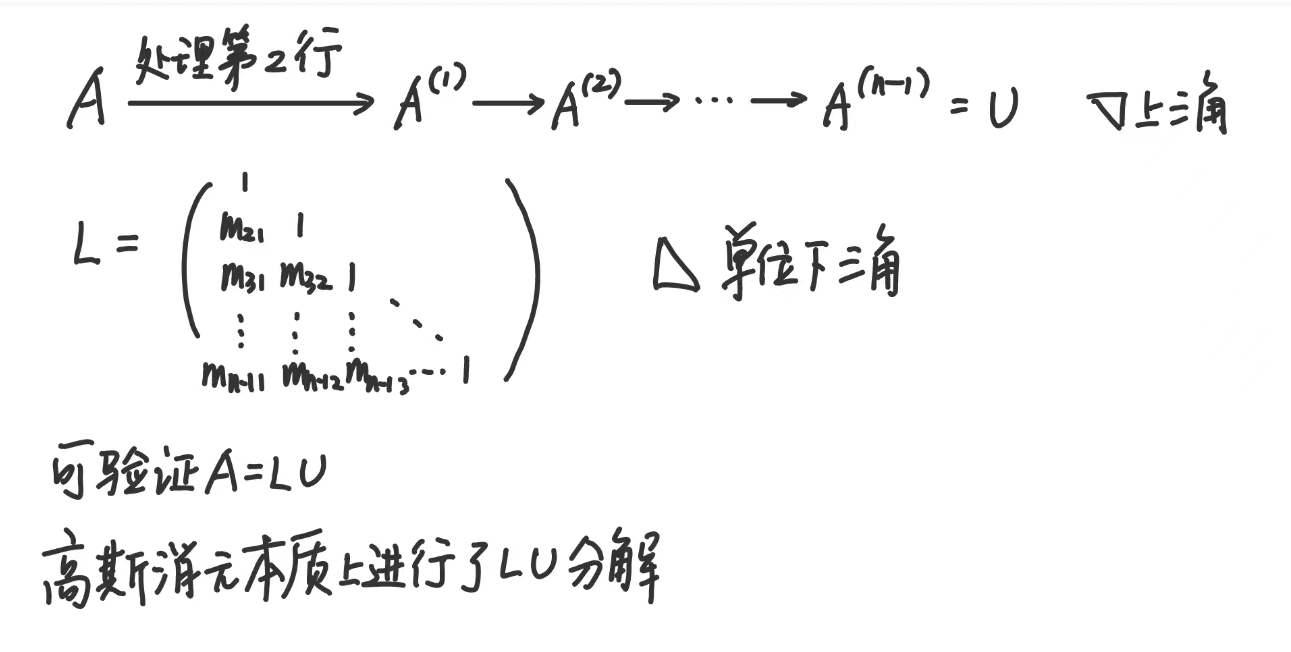 A 处理第2行 → A^(1) → A^(2) → ⋯ → A^(n-1) = U ▽上三角
L = ( 1
m21 1
m31 m32 1
⋮ ⋮ ⋮ ⋱
mn-11 mn-12 mn-13 ⋯ 1 ) △ 单位下三角
可验证A=LU
高斯消元本质上进行了LU分解